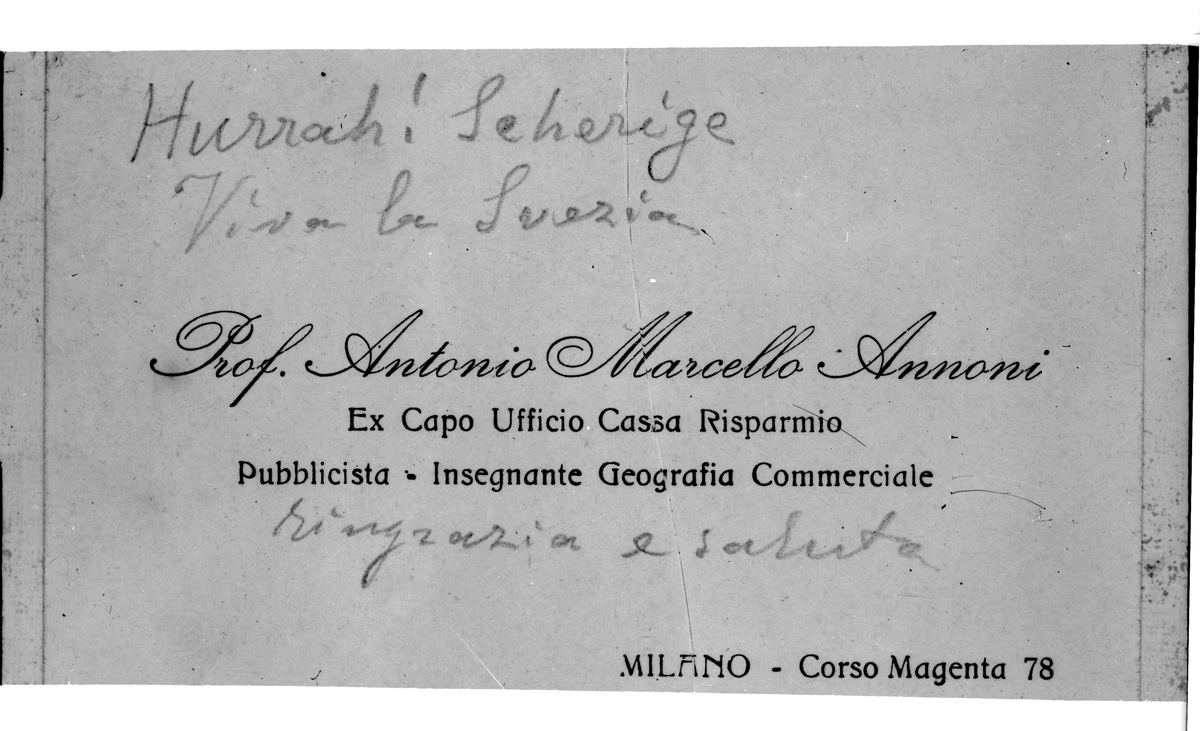 Hurrah! Scherige
Viva la Svezia
Prof. Antonio Marcello Annoni
Ex Capo Ufficio Cassa Risparmio
Pubblicista - Insegnante Geografia Commerciale
ringrazia e saluta
MILANO - Corso Magenta 78